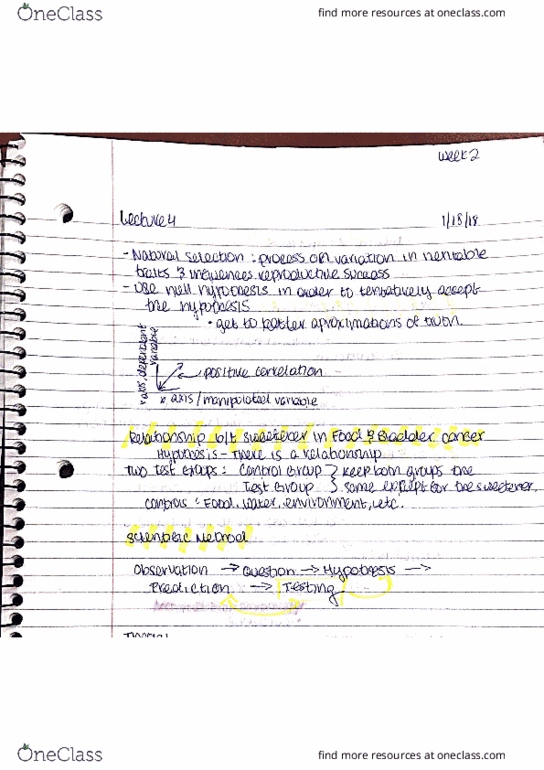 OneClass
find more resources at oneclass.com
week 2
Lecture 4
1/18/18
- Natural selection : process on variation in heritable
traits & influences reproductive success
- Use null hypothesis in order to tentatively accept
the hypothesis
• get to better aproximations of truth.
y axis, dependent
variable
positive correlation
x axis / manipulated variable
Relationship b/t sweetener in Food & Bladder cancer
Hypothesis - There is a relationship
Two Test Groups : Control Group
keep both groups the
Test Group
same except for the sweetener
controls : Food, water, environment, etc.
Scientific Method
Observation → Question → Hypothesis →
Prediction → Testing
OneClass
find more resources at oneclass.com